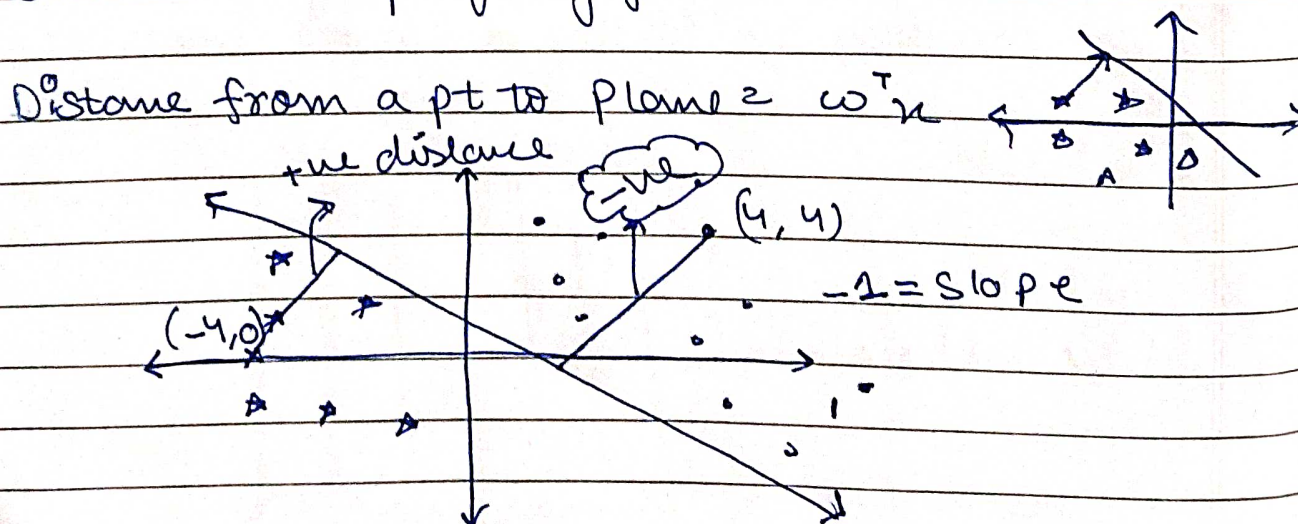 Distance from a pt to Plane = ωᵀx
+ve distance
-ve
(4, 4)
-1 = Slope
(-4,0)